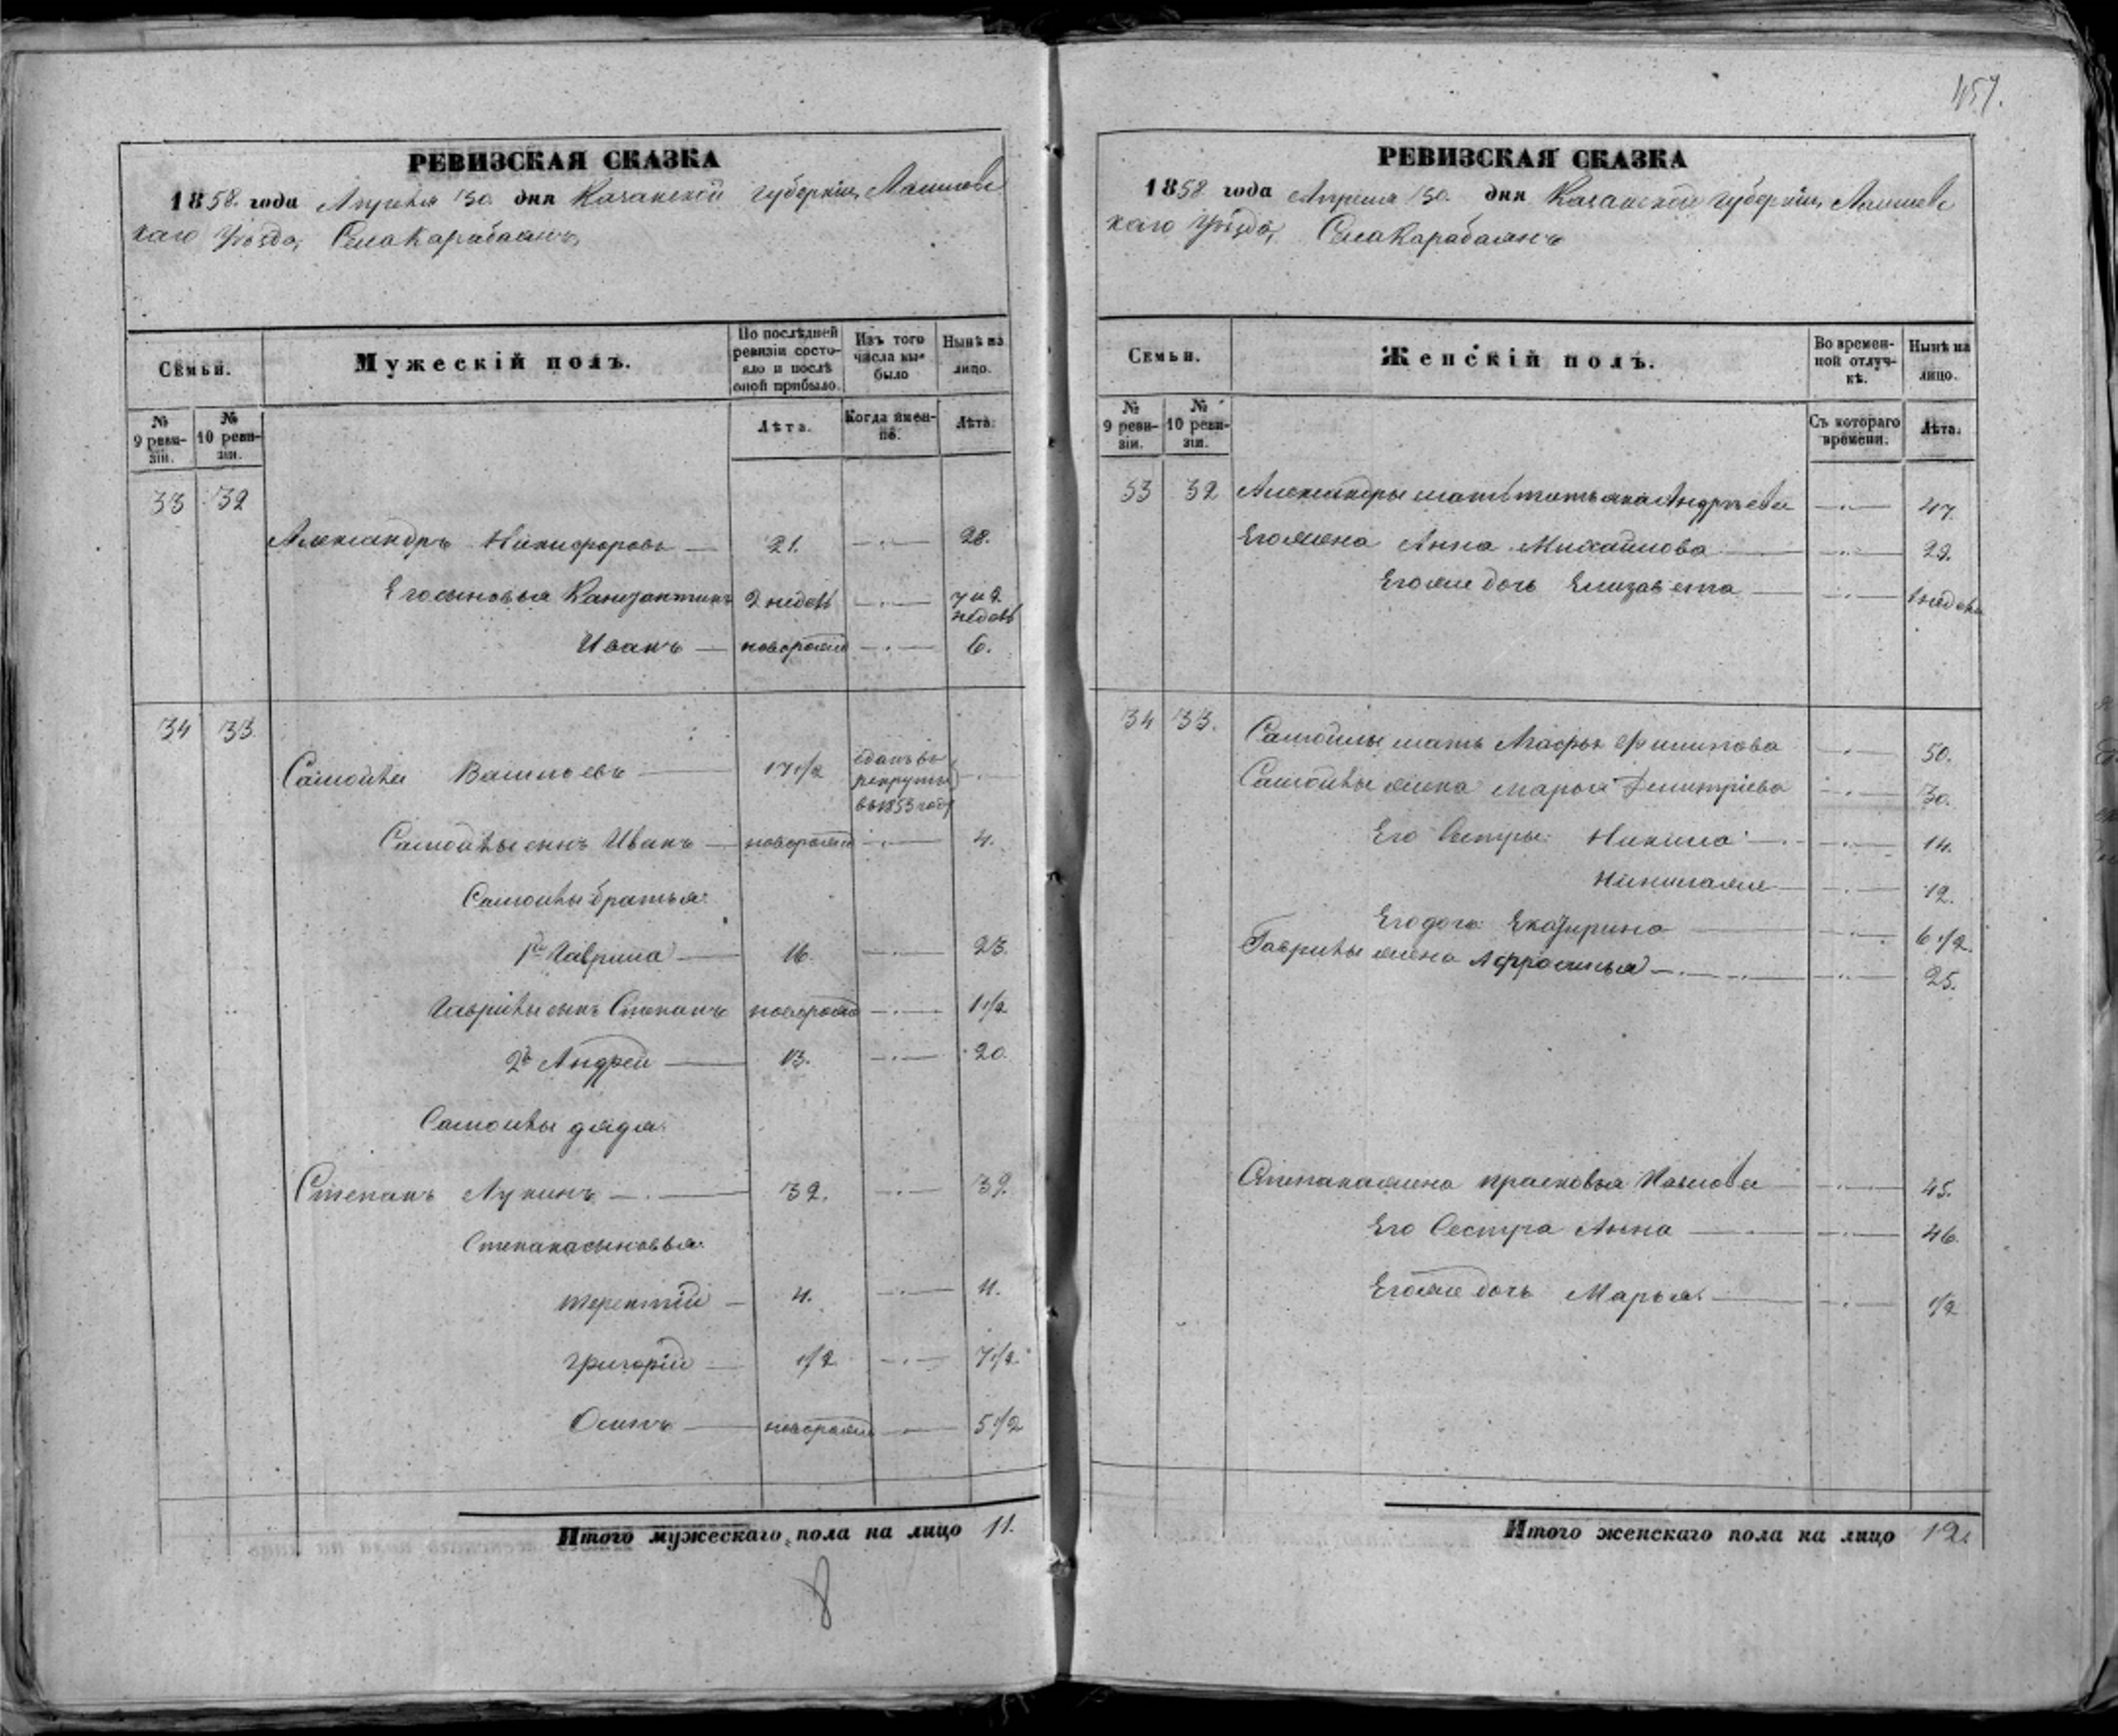 РЕВИЗСКАЯ СКАЗКА
1858. года Апрѣля 30. дня Казанской губерніи, Лаишевс
каго уѣзда, Села Карабаянъ,
Семьи.
Мужескій полъ.
По послѣдней ревизіи состояло и послѣ оной прибыло.
Изъ того числа выбыло
Нынѣ на лицо.
№ 9 ревизіи.
№ 10 ревизіи.
Лѣта.
Когда именно.
Лѣта.
33 32
Александръ Никифоровъ — 21. —.— 28.
Его сыновья Констянтинъ 2 недѣль —.— 7 и 2 недѣль
Иванъ — новорожд —.— 6.
34 33
Самойла Васильевъ — 17 1/2 сданъ въ рекруты въ 1853 году —.—
Самойлы сынъ Иванъ — новорожд —.— 4.
Самойлы братья:
1й Гаврила — 16. —.— 23.
Гаврилы сынъ Степанъ новорожд —.— 1 1/2
2й Андрей — 13. —.— 20.
Самойлы дядя:
Степанъ Лукинъ —.— 32. —.— 39.
Степана сыновья:
терентій — 4. —.— 11.
григорій — 1/2 —.— 7 1/2.
Осипъ — новорожд —.— 5 1/2
Итого мужескаго пола на лицо 11.
157.
РЕВИЗСКАЯ СКАЗКА
1858 года Апрѣля 30. дня Казанской губерніи, Лаишевс
каго уѣзда, Села Карабаянъ
Семьи.
Женскій полъ.
Во временной отлучкѣ.
Нынѣ на лицо.
№ 9 ревизіи.
№ 10 ревизіи.
Съ котораго времени.
Лѣта.
33 32 Александры мать татьяна Андрѣева —.— 47.
Его жена Анна Михайлова —.— 29.
Его же дочь Елизавета —.— 1 недѣли
34 33. Самойлы мать Агафья Филипова —.— 50.
Самойлы жена марья Димитріева —.— 30.
Его Сестры: —.— 14.
—.— 12.
Его дочь Екатирина —.— 6 1/2.
Гаврилы жена Афросинья —.— 25.
Степана жена прасковья —.— 45.
Его Сестра Анна —.— 46.
Его же дочь Марья. —.— 1/2
Итого женскаго пола на лицо 12.